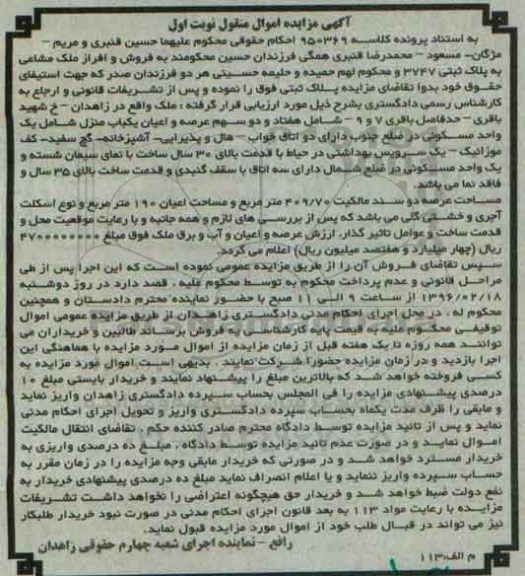 آگهی مزایده اموال منقول نوبت اول
به استناد پرونده کلاسه ۹۵۰۳۶۹ احکام حقوقی محکوم علیهما حسین قنبری و مریم –
مژگان– مسعود – محمدرضا قنبری همگی فرزندان حسین محکومند به فروش و افراز ملک مشاعی
به پلاک ثبتی ۳۷۴۷ و محکوم لهم حمیده و حلیمه حسینی هر دو فرزندان صدر که جهت استیفای
حقوق خود بدوا تقاضای مزایده پلاک ثبتی فوق را نموده و پس از تشریفات قانونی و ارجاع به
کارشناس رسمی دادگستری بشرح ذیل مورد ارزیابی قرار گرفته : ملک واقع در زاهدان – خ شهید
باقری – حدفاصل باقری ۷ و ۹ – شامل هفتاد و دو سهم عرصه و اعیان یکباب منزل شامل یک
واحد مسکونی در ضلع جنوب دارای دو اتاق خواب – هال و پذیرایی– آشپزخانه– گچ سفید– کف
موزائیک – یک سرویس بهداشتی در حیاط با قدمت بالای ۳۰ سال ساخت با نمای سیمان شسته و
یک واحد مسکونی در ضلع شمال دارای سه اتاق با سقف گنبدی و قدمت ساخت بالای ۳۵ سال و
فاقد نما می باشد.
مساحت عرصه دو سند مالکیت ۴۰۹/۷۰ متر مربع و مساحت اعیان ۱۹۰ متر مربع و نوع اسکلت
آجری و خشتی گلی می باشد که پس از بررسی های لازم و همه جانبه و با رعایت موقعیت محل و
قدمت ساخت و عوامل تاثیر گذار، ارزش عرصه و اعیان و آب و برق ملک فوق مبلغ ۴۷۰۰۰۰۰۰۰۰
ریال (چهار میلیارد و هفتصد میلیون ریال) اعلام می گردد.
سپس تقاضای فروش آن را از طریق مزایده عمومی نموده است که این اجرا پس از طی
مراحل قانونی و عدم پرداخت محکوم به توسط محکوم علیه ، قصد دارد در روز دوشنبه
۱۳۹۶/۰۲/۱۸ از ساعت ۹ الی ۱۱ صبح با حضور نماینده محترم دادستان و همچنین
محکوم له ، در محل اجرای احکام مدنی دادگستری زاهدان از طریق مزایده عمومی اموال
توقیفی محکوم علیه به قیمت پایه کارشناسی به فروش برساند طالبین و خریداران می
توانند همه روزه تا یک هفته قبل از زمان مزایده از اموال مورد مزایده با هماهنگی این
اجرا بازدید و در زمان مزایده حضورا شرکت نمایند . بدیهی است اموال مورد مزایده به
کسی فروخته خواهد شد که بالاترین مبلغ را پیشنهاد نمایند و خریدار بایستی مبلغ ۱۰
درصدی پیشنهادی مزایده را فی المجلس بحساب سپرده دادگستری زاهدان واریز نماید
و مابقی را ظرف مدت یکماه بحساب سپرده دادگستری واریز و تحویل اجرای احکام مدنی
نماید و پس از تائید مزایده توسط دادگاه محترم صادر کننده حکم ، تقاضای انتقال مالکیت
اموال نماید و در صورت عدم تائید مزایده توسط دادگاه ، مبلغ ده درصدی واریزی به
خریدار مسترد خواهد شد و در صورتی که خریدار مابقی وجه مزایده را در زمان مقرر به
حساب سپرده واریز ننماید و یا اعلام انصراف نماید مبلغ ده درصدی پیشنهادی خریدار به
نفع دولت ضبط خواهد شد و خریدار حق هیچگونه اعتراضی را نخواهد داشت تشریفات
مزایده با رعایت مواد ۱۱۳ به بعد قانون اجرای احکام مدنی در صورت نبود خریدار طلبکار
نیز می تواند در قبال طلب خود از اموال مورد مزایده قبول نماید.
رافع – نماینده اجرای شعبه چهارم حقوقی زاهدان
م الف:۱۱۳